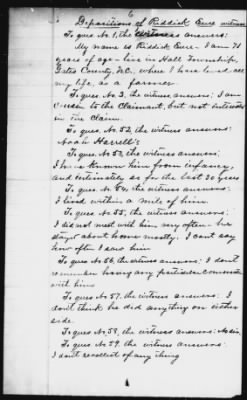 6
Deposition of Riddick Eure witness
To ques No. 1, the witness answers:
My name is Riddick Eure. I am 71
years of age - live in Hall Township,
Gates County, N.C., where I have lived all
my life, as a farmer.
To ques No. 3, the witness answers: I am
cousin to the Claimant, but not interested
in the Claim.
To ques No. 52, the witness answers:
Noah Harrell's
To ques No. 53, the witness answers:
I have known him from infancy,
and intimately as for the last 20 years
To ques No. 54, the witness answers:
I lived within a mile of him.
To ques No. 55, the witness answers:
I did not meet with him very often - he
stayed about home mostly. I can't say
how often I saw him
To ques No. 56, the witness answers: I don't
remember having any particular
with him
To ques No. 57, the witness answers: I
don't think he did anything on either
side.
To ques No. 58, the witness answers:
To ques No. 59, the witness answers:
I don't recollect of any thing